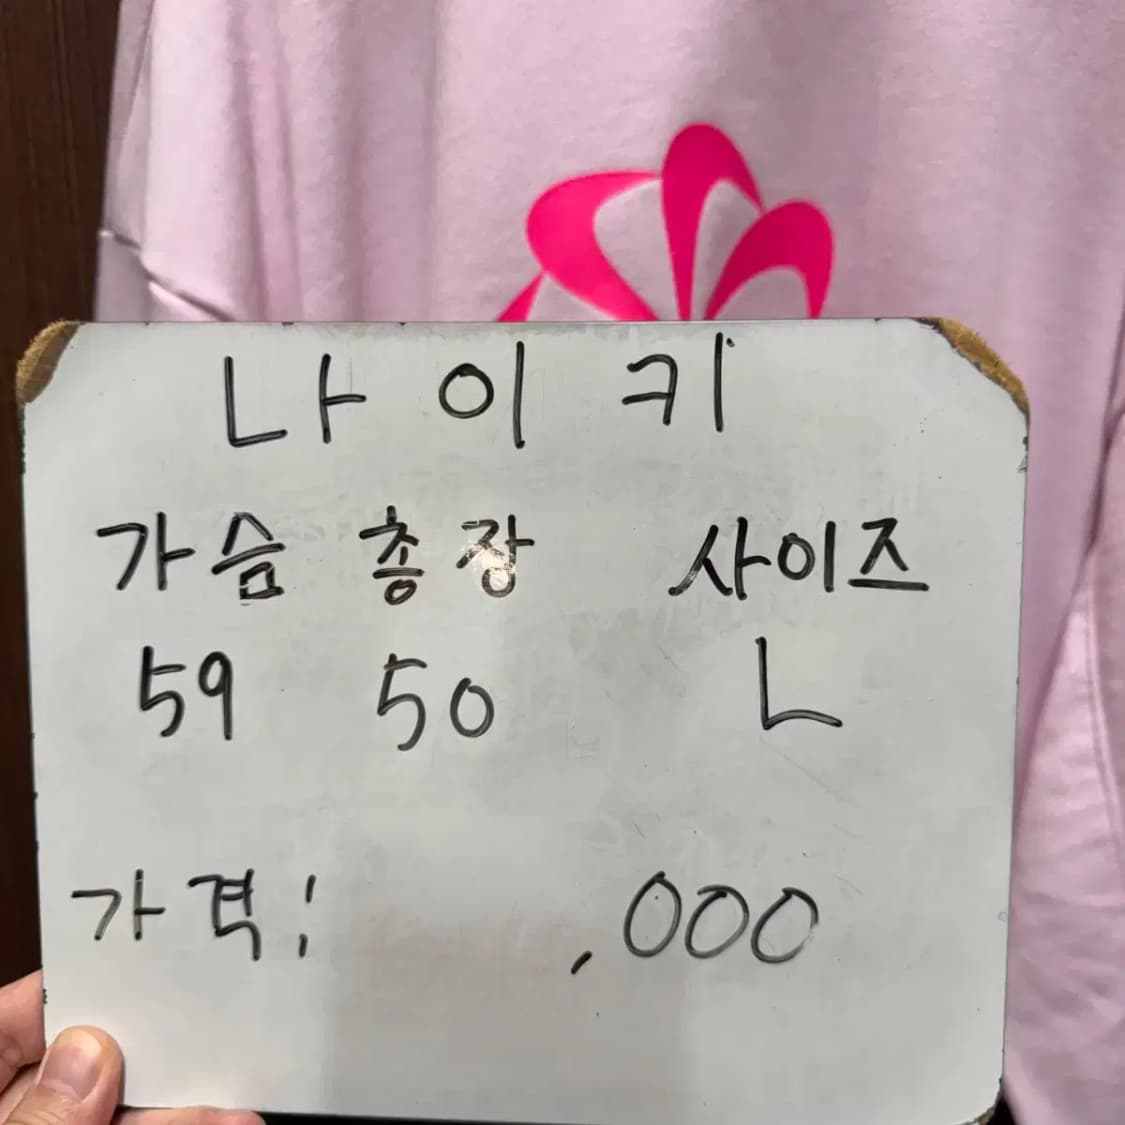 나이키
가슴 총장 사이즈
59 50 L
가격: ,000